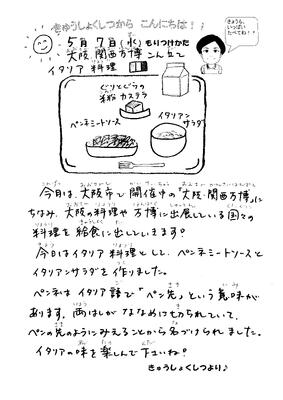 きゅうしょくしつから こんにちは！
5月7日(水)もりつけかた
大阪 関西万博 こんだて
イタリア 料理
きょうも、
いっぱい
たべてね！
ぐりとぐらの
米粉 カステラ
イタリアン
サラダ
ペンネミートソース
今日は、大阪市で開催中の「大阪・関西万博」に
ちなみ、大阪の料理や万博に出展している国々の
料理を給食に出していきます？
今日はイタリア料理として、ペンネミートソースと
イタリアンサラダを作りました。
ペンネはイタリア語で「ペン先」という意味が
あります。両はしがななめに切られていて、
ペンの先のようにみえることから名づけられました。
イタリアの味を楽しんで下さいね？
きゅうしょくしつより♪